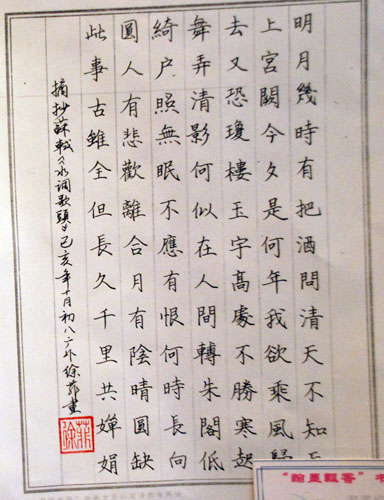 明月幾時有把酒問清天不知天
上宮闕今夕是何年我欲乘風歸
去又恐瓊樓玉宇高處不勝寒起
舞弄清影何似在人間轉朱閣低
綺户照無眠不應有恨何時長向
圓人有悲歡離合月有陰晴圓缺
此事古雖全但長久千里共嬋娟
摘抄蘇軾《水调歌頭》己亥年十月初八
"翰墨飄香"